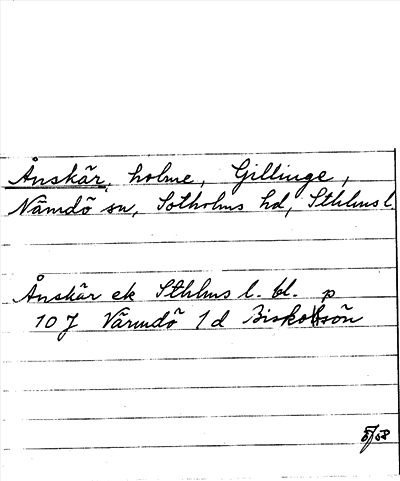 Ånskär, holme, Gillinge,
Nämdö sn, Sotholms hd, Sthlms l.
Ånskär ek Sthlms l. bl. p
10 J Värmdö 1 d Biskopsön
5/58